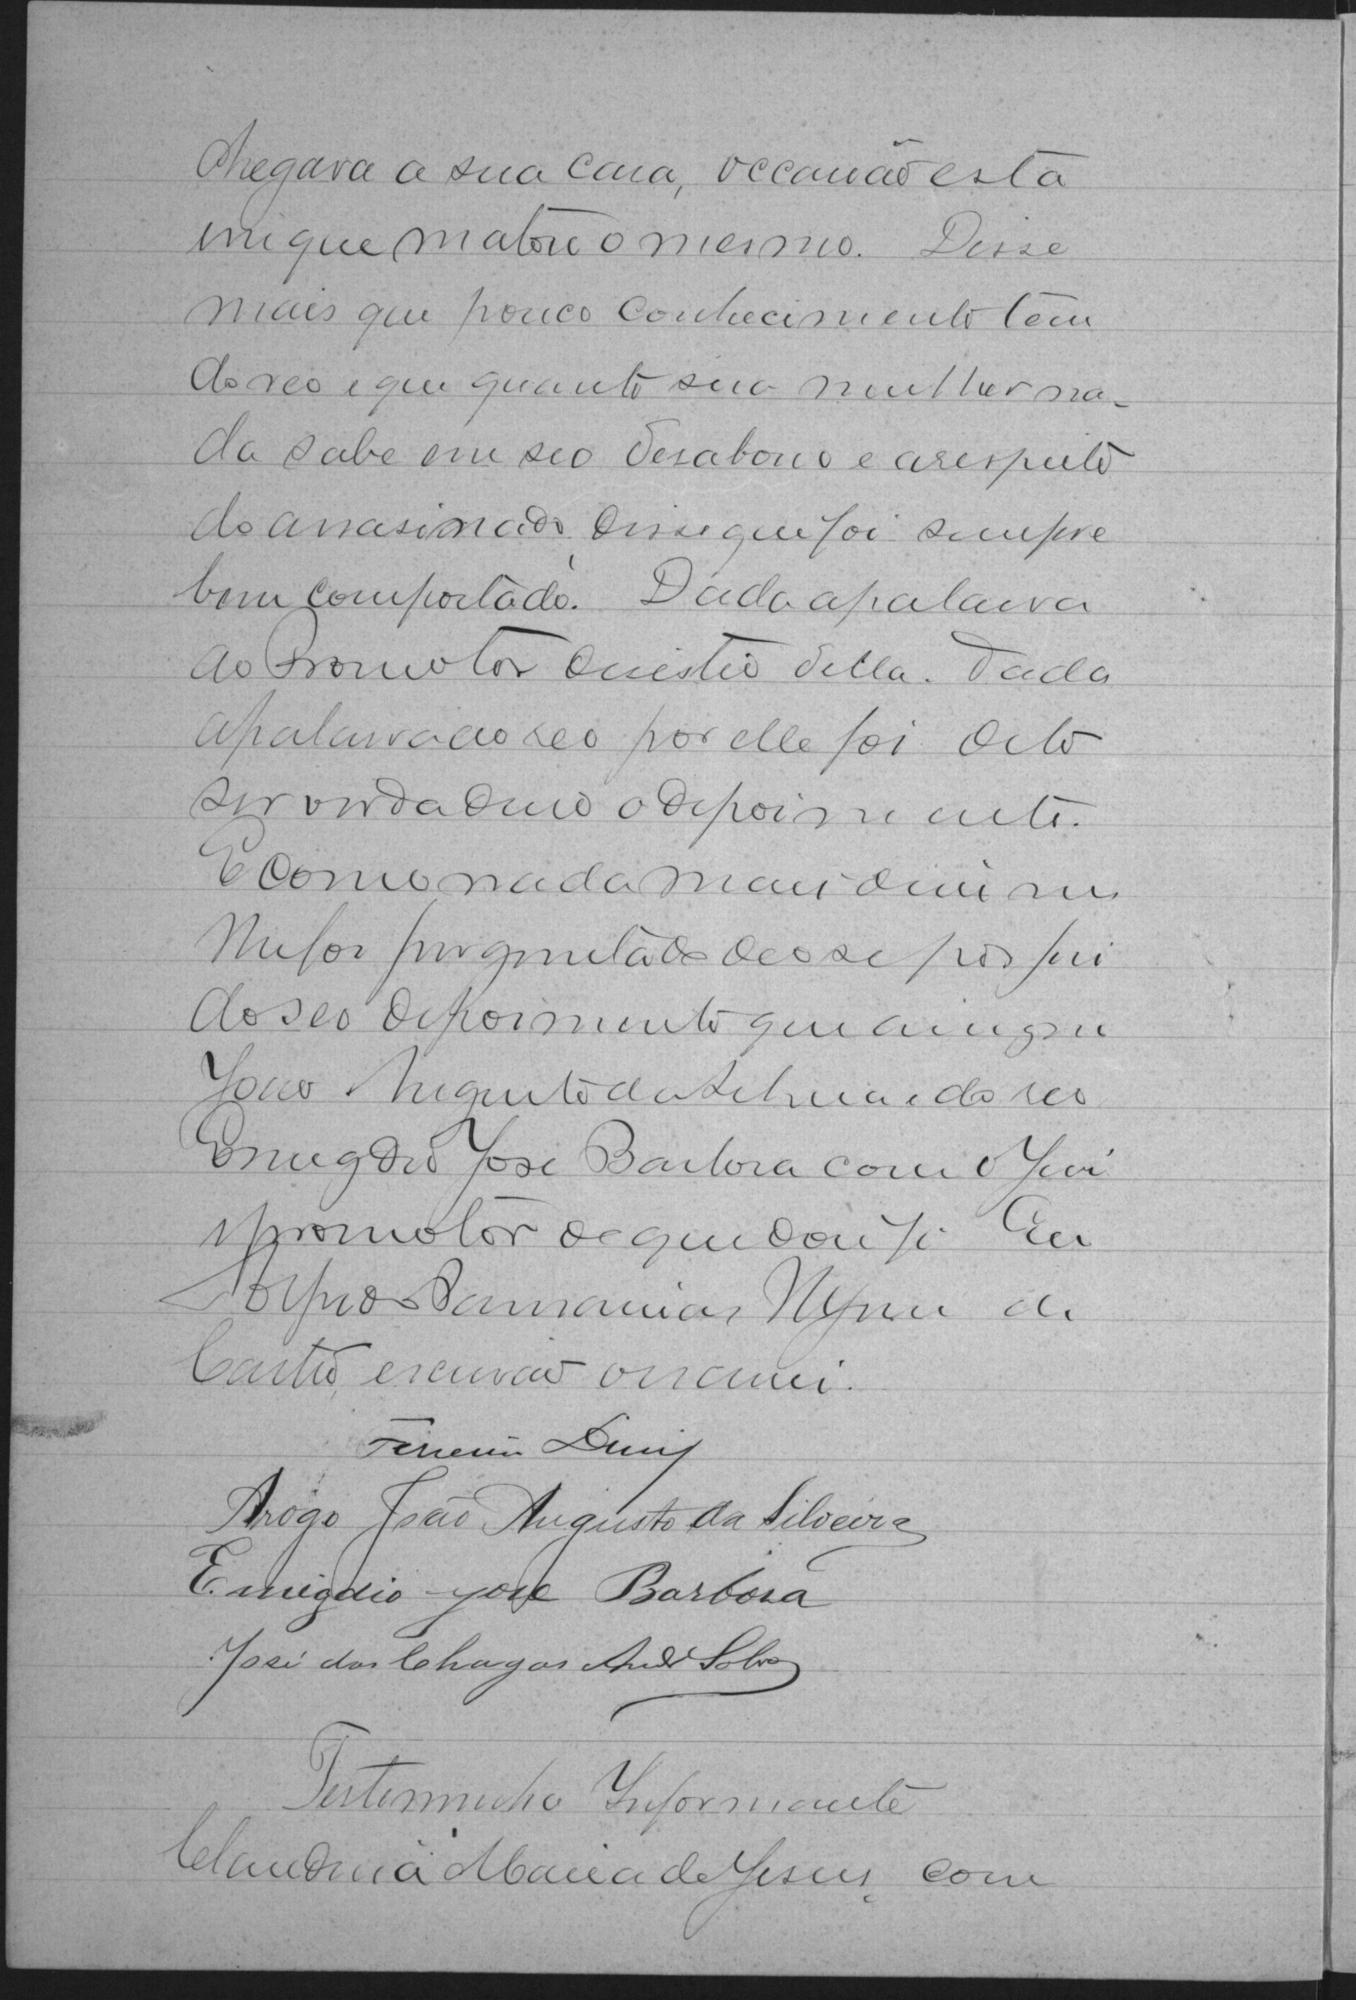 chegava a sua casa, occasião esta
em que matou o mesmo. Disse
mais que pouco conhecimento tem
do reo e que quanto sua mulher na-
da sabe em seo desabono e a respeito
do assasinado, disse que foi sempre
bem comportado. Dada a palavra
ao Promotor desistio della. Dada
a palavra ao reo por elle foi dito
ser verdadeiro o depoimento.
E como nada mais disse nem
lhe foi perguntado deo se por fin
do seo depoimento que assigna
João Augusto da Silveira e do reo
Emygdio José Barbosa com o Juiz
e promotor de que dou fé Eu
Castro, escrivão o escrevi.
Ferreira Diniz
Arogo João Augusto da Silveira
Emigdio José Barbosa
José das Chagas Andr Silva
Testemunha Informante
Claudina Maria de Jesus, com